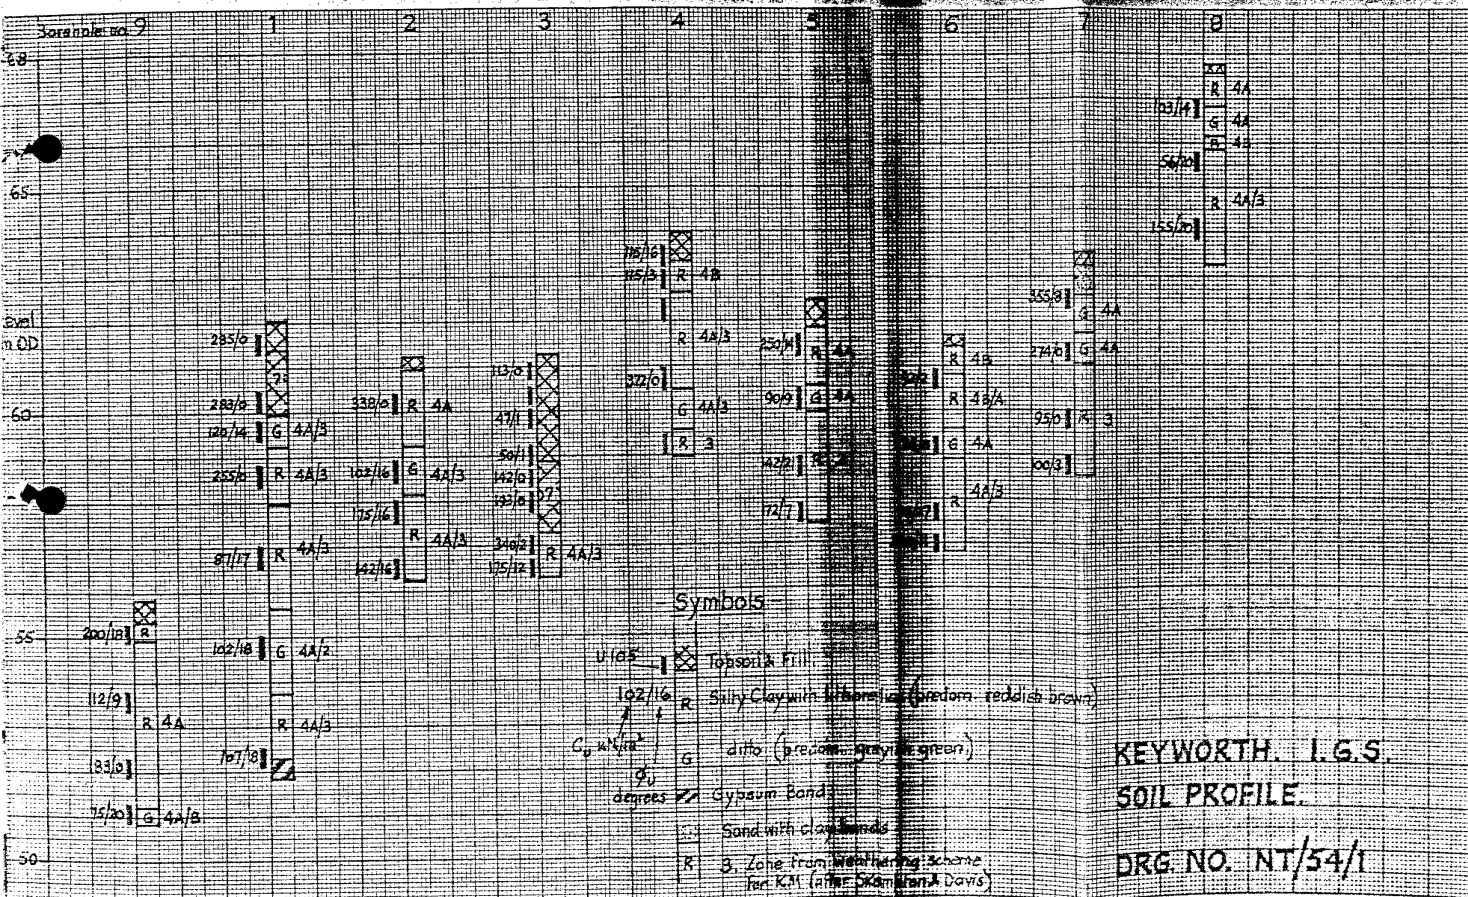 Borehole no. 9 1 2 3 4 5 6 7 8
68
65
60
55
50
Level
m OD
200/18
R
112/9
R 4A
183/0
75/20
G 4A/B
285/0
?
283/0
120/14
G 4A/3
255/0
R 4A/3
87/17
R 4A/3
102/18
G 4A/2
R 4A/3
107/18
338/0
R 4A
102/16
G 4A/3
175/16
R 4A/3
142/16
113/0
47/1
50/1
142/0
?
193/0
340/2
R 4A/3
175/12
115/16
115/3
R 4B
R 4A/3
372/0
G 4A/3
R 3
250/14
R 4A
90/9
G 4A
142/21
R
72/7
R 4B
R 4B/A
G 4A
R 4A/3
355/8
G 4A
274/0
G 4A
95/0
R 3
100/3
R 4A
103/14
G 4A
R 4B
56/20
R 4A/3
155/20
- Symbols -
U 105
Topsoil & Fill.
102/16
R
Silty Clay with (predom. reddish brown)
Cu kN/m²
G
ditto (predom. greyish green)
Øu
degrees
Gypsum Band
Sand with clay bands
R
3. Zone from weathering scheme
for KM (after Skempton & Davis)
KEYWORTH. I.G.S.
SOIL PROFILE.
DRG. NO. NT/54/1